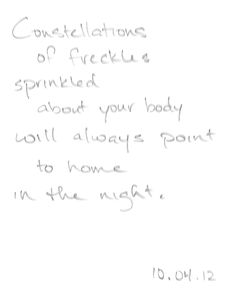 Constellations
of freckles
sprinkled
about your body
will always point
to home
in the night.
10.04.12